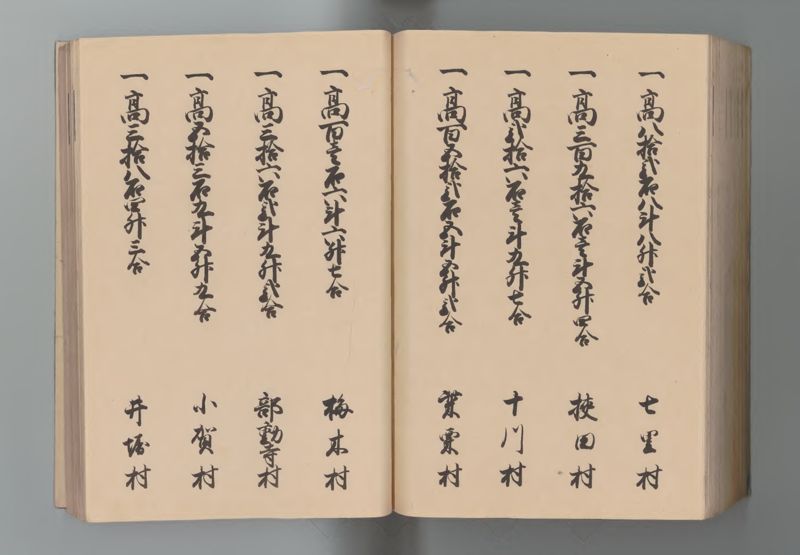 一高八拾弐石八斗八升弐合 七里村
一高三百九拾六石壱斗五升四合 挾田村
一高弐拾六石壱斗九升七合 十川村
一高百五拾弐石五斗五升弐合 葉栗村
一高百壱石六斗六升七合 梅木村
一高三拾六石弐斗九升弐合 部動寺村
一高五拾三石九斗五升九合 小賀村
一高三拾八石四升三合 井堀村